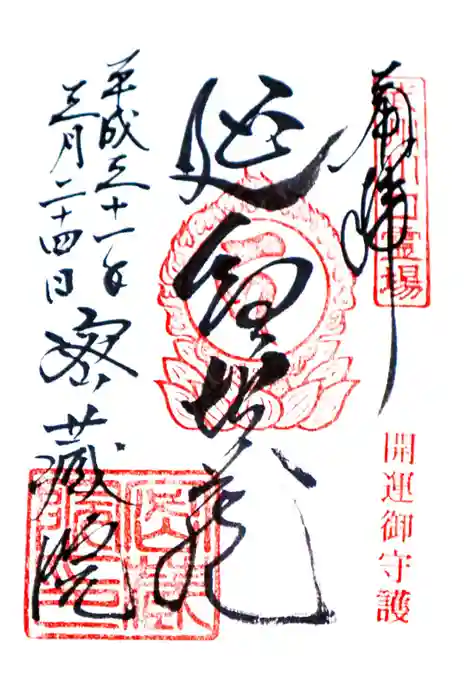 奉拝
霊場
開運御守護
延命地蔵
平成三十一年
三月二十四日
密蔵院